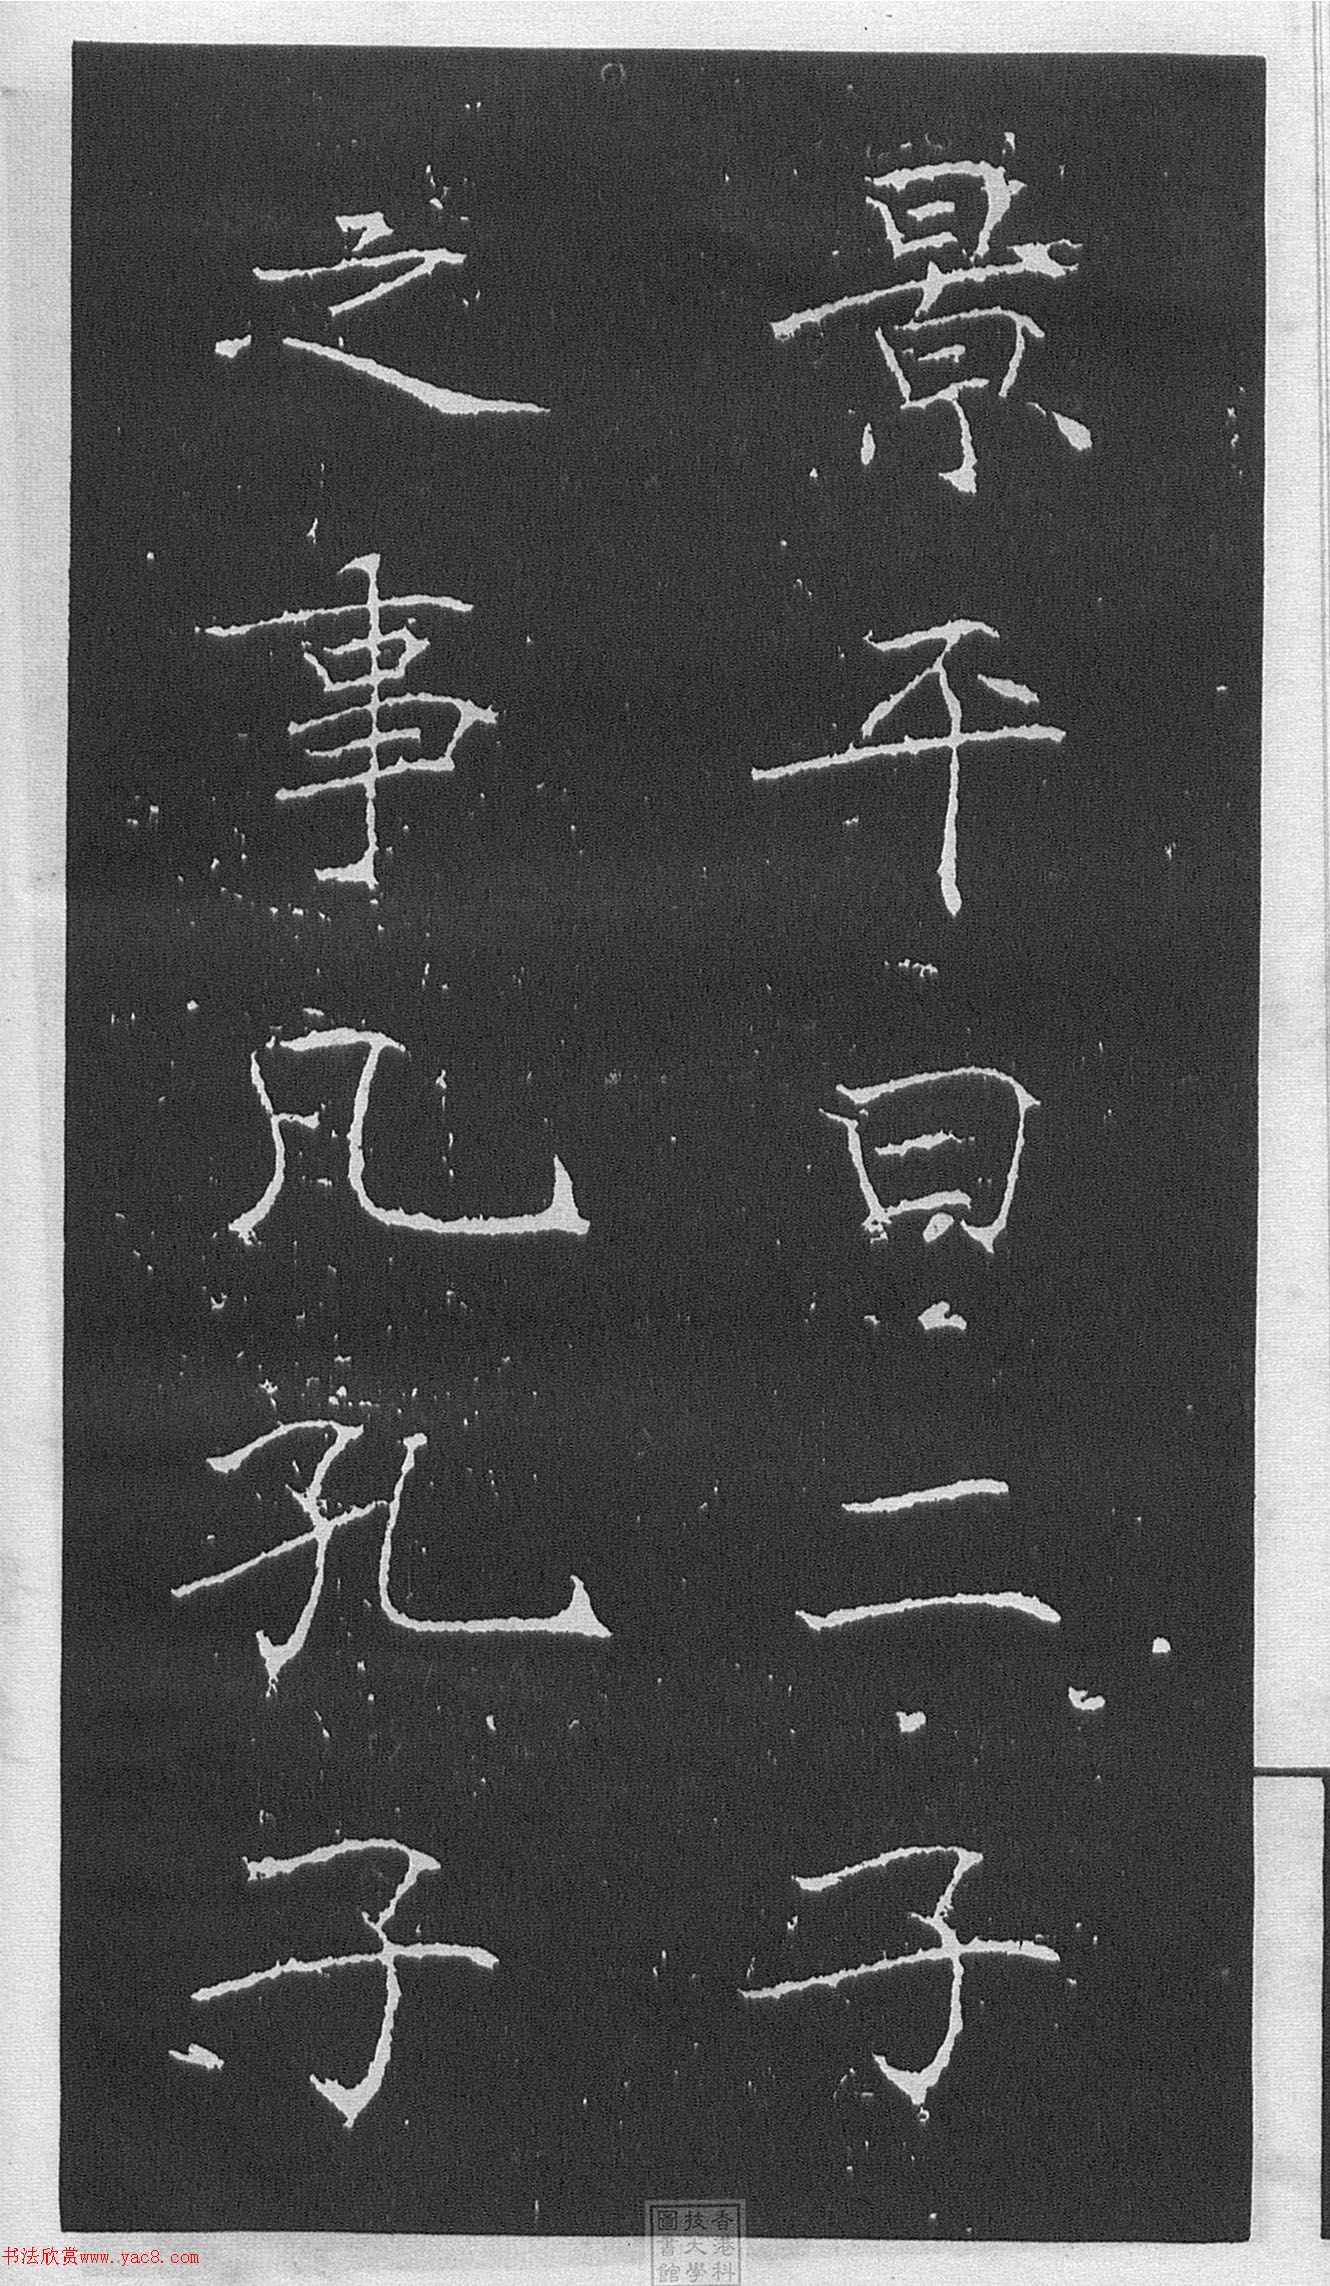 景平日二子
之事凡孔子
香港科
技大學
圖書館
书法欣赏www.yac8.com